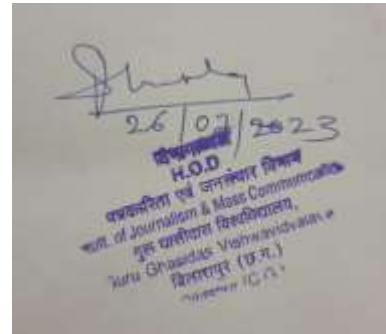 26/07/2023
विभागाध्यक्ष
H.O.D
पत्रकारिता एवं जनसंचार विभाग
of Journalism & Mass Communication
गुरू घासीदास विश्वविद्यालय,
Guru Ghasidas Vishwavidyalaya
बिलासपुर (छ.ग.)